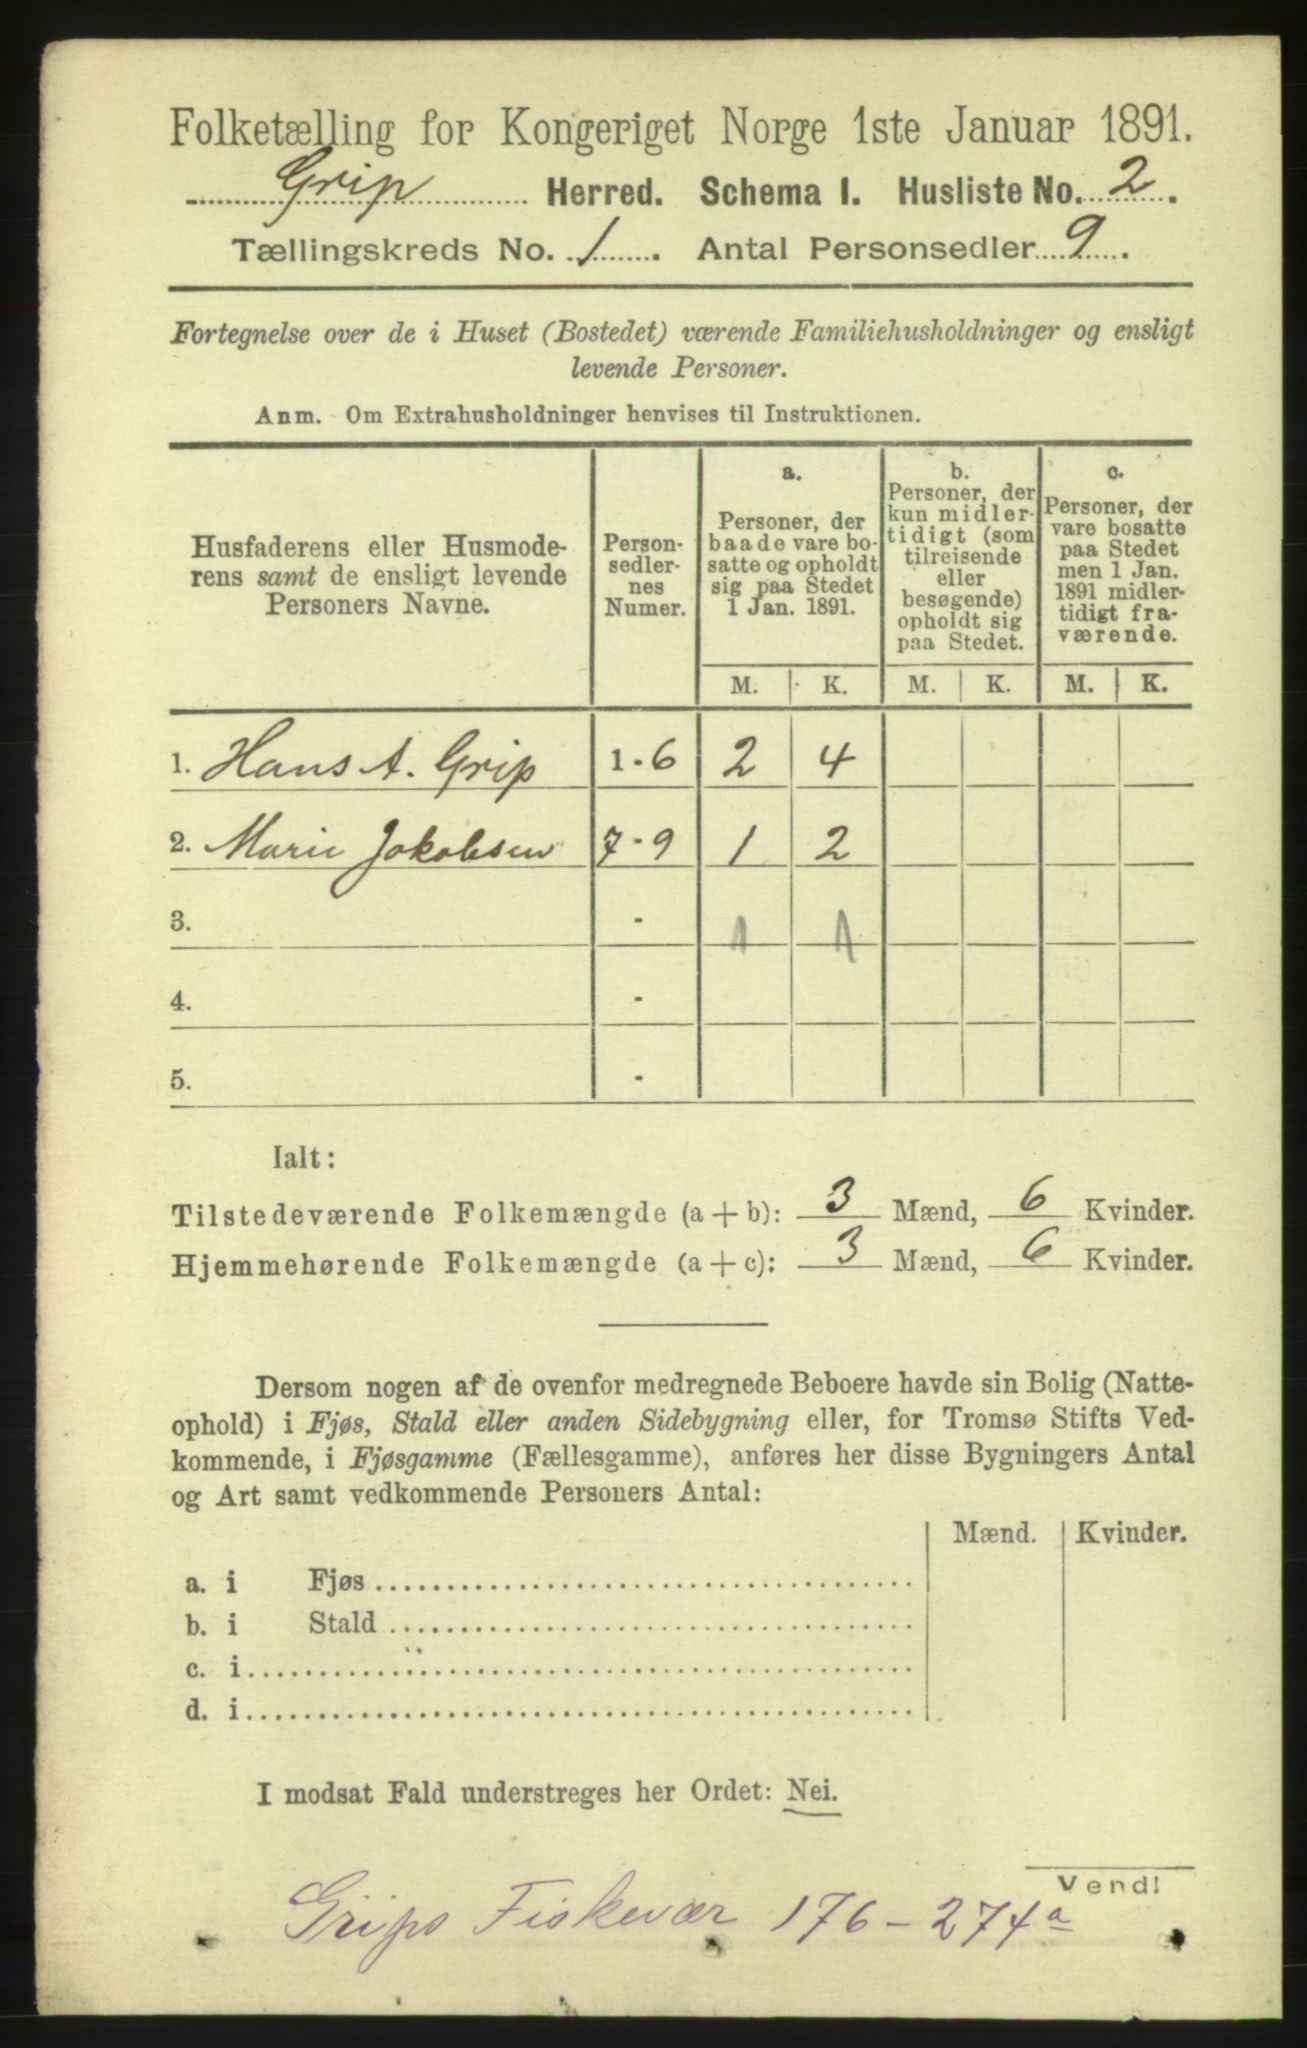 Folketælling for Kongeriget Norge 1ste Januar 1891.
Grip Herred. Schema I. Husliste No. 2.
Tællingskreds No. 1. Antal Personsedler 9.
Fortegnelse over de i Huset (Bostedet) værende Familiehusholdninger og ensligt
levende Personer.
Anm. Om Extrahusholdninger henvises til Instruktionen.
Husfaderens eller Husmode-
rens samt de ensligt levende
Personers Navne.
Person-
sedler-
nes
Numer.
a.
Personer, der
baade vare bo-
satte og opholdt
sig paa Stedet
1 Jan. 1891.
b.
Personer, der
kun midler-
tidigt (som
tilreisende
eller
besøgende)
opholdt sig
paa Stedet.
c.
Personer, der
vare bosatte
paa Stedet
men 1 Jan.
1891 midler-
tidigt fra-
værende.
M. K. M. K. M. K.
1. Hans A. Grip 1-6 2 4
2. Marie Jakobsen 7-9 1 2
3. - 1 1
4. -
5. -
Ialt:
Tilstedeværende Folkemængde (a+b): 3 Mænd, 6 Kvinder.
Hjemmehørende Folkemængde (a+c): 3 Mænd, 6 Kvinder.
Dersom nogen af de ovenfor medregnede Beboere havde sin Bolig (Natte-
ophold) i Fjøs, Stald eller anden Sidebygning eller, for Tromsø Stifts Ved-
kommende, i Fjøsgamme (Fællesgamme), anføres her disse Bygningers Antal
og Art samt vedkommende Personers Antal:
Mænd. Kvinder.
a. i Fjøs
b. i Stald
c. i
d. i
I modsat Fald understreges her Ordet: Nei.
Vend!
Grips Fiskevær 176-274a